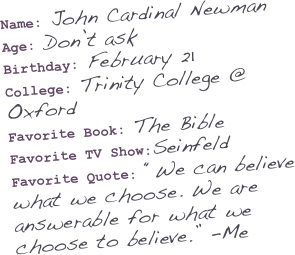 Name: John Cardinal Newman
Age: Don't ask
Birthday: February 21
College: Trinity College @
Oxford
Favorite Book: The Bible
Favorite TV Show: Seinfeld
Favorite Quote: "We can believe
what we choose. We are
answerable for what we
choose to believe." -Me